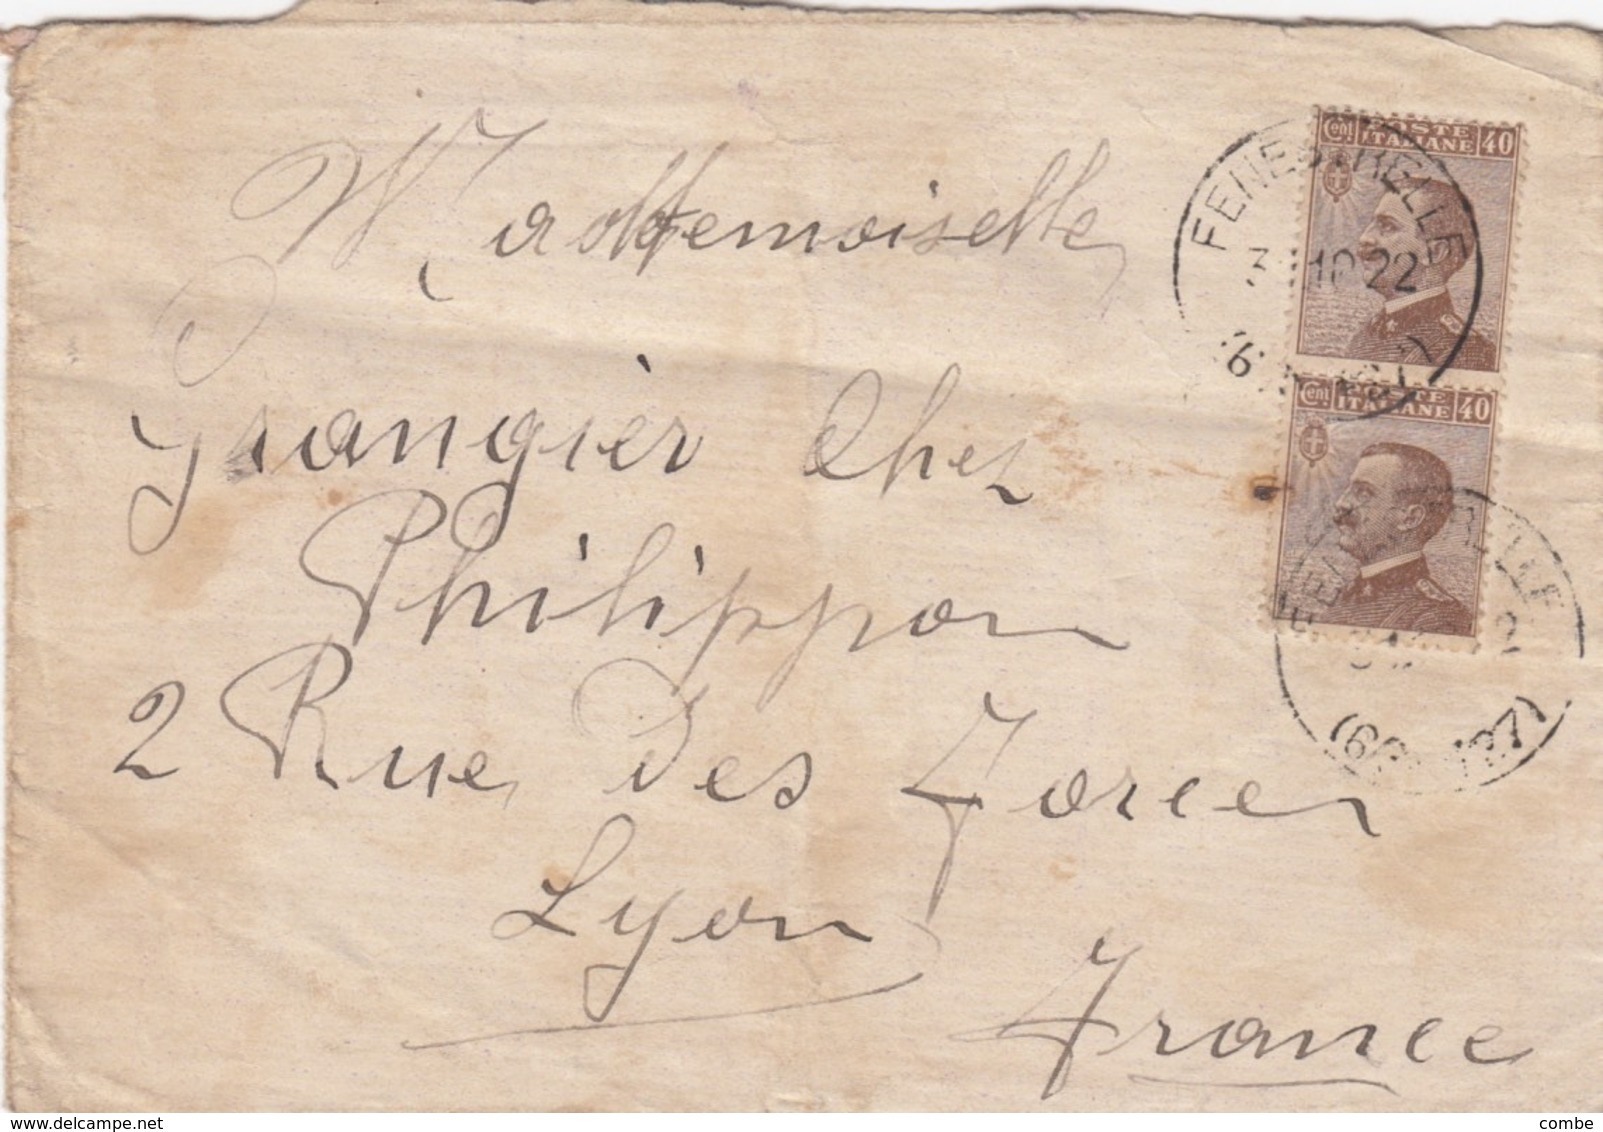 Cent POSTE ITALIANE 40
FENESTRELLE
3 10 22
Cent POSTE ITALIANE 40
FENESTRELLE
Mademoiselle
Grangier Chez
Philippon
2 Rue des Forces
Lyon
France
delcampe.net
combe